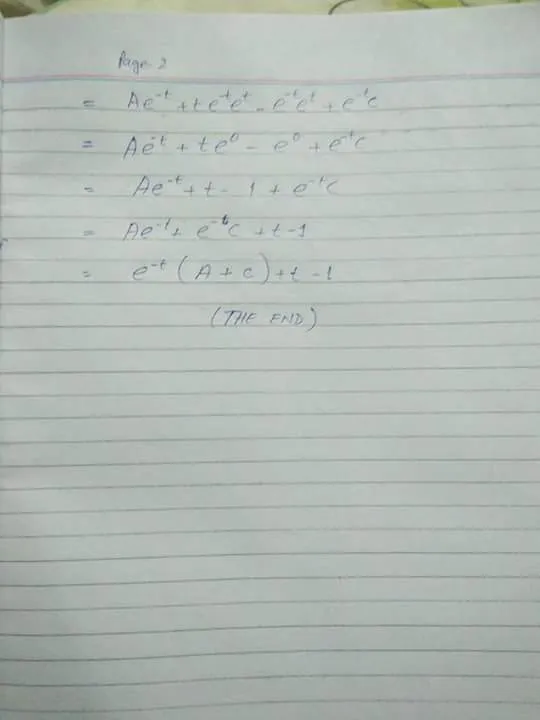 Page 2
= Ae^-t + t e^-t e^t - e^-t e^t + e^-t c
= Ae^-t + t e^0 - e^0 + e^-t c
= Ae^-t + t - 1 + e^-t c
= Ae^-t + e^-t c + t - 1
= e^-t (A + c) + t - 1
(THE END)